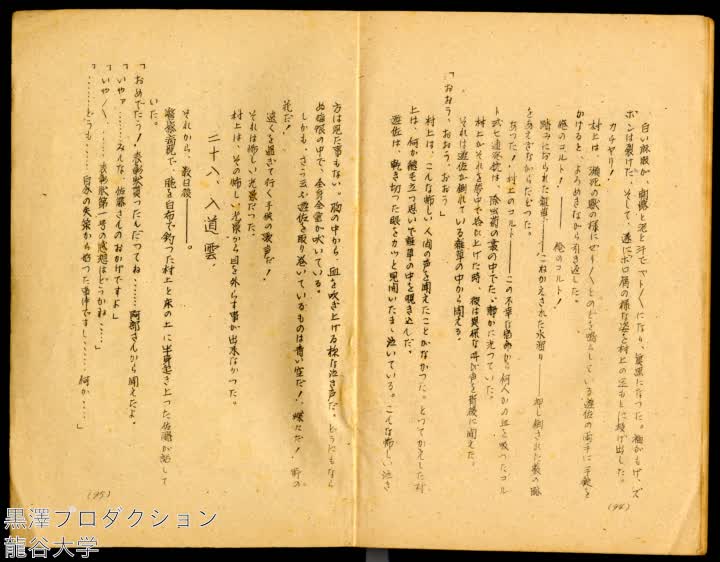 白い麻服が、開襟と泥と汗でヤト／＼になり、真黒になつた。袖がもげ、ズ
ボンは裂けた、そして、遂にボロ屑の様な姿を村上の足もとに投げ出した。
ガチヤリ！
村上は、瀕死の獣の様にぜり／＼とのどを鳴らしている遊佐の両手に手錠を
かけると、よろめきながら引き返した。
俺のコルト！――俺のコルト！
踏みにじられた雑草――こねかえされた水溜り――押し倒された藪の
をあえぎながらたどつた。
あつた！村上のコルト――この不幸な 何人かの血を吸つたコル
ト式七連発銃は、除虫菊の叢の中でた 静かに光つていた。
村上がそれを夢中で拾い上げた時、彼は異様な叫び声を背後に聞えた。
それは遊佐が倒れている雑草の中から聞える。
「おおう、おおう、おおう」
村上は、こんな怖しい人間の声を聞えたことがなかつた。とつてかえした村
上は、何か縋も立つ思いで雑草の中を覗き込んだ。
遊佐は、乾き切つた眼をカツと見開いたまゝ泣いている。こんな怖しい泣き
(94)
方は見た事もない。胸の中から、血を吹き上げる様な泣き声だ。どうにもなら
ぬ悔恨の中で、全身全霊が吠いている。
しかも、さう云ふ遊佐を取り巻いているものは青い空だ！蝶々だ！野の
花だ！
遠くを過ぎて行く子供の歌声だ！
それは怖しい光景だつた。
村上は、その怖しい光景から目を外らす事が出来なかつた。
二十八、入道雲、
それから、数日後――
警察病院で、腕を白布で釣つた村上と床の上に半身起き上つた佐藤が話して
いた。
「おめでたう！表彰状貰つたんだつてね……阿部さんから聞えたよ。
「いやァ……みんな、佐藤さんのおかげですよ」
「いや／＼……表彰状第一号の感想はどうかね……」
「……どうも……自分の失策から始つた事件ですし……何か……」
(95)
黒澤プロダクション
龍谷大学